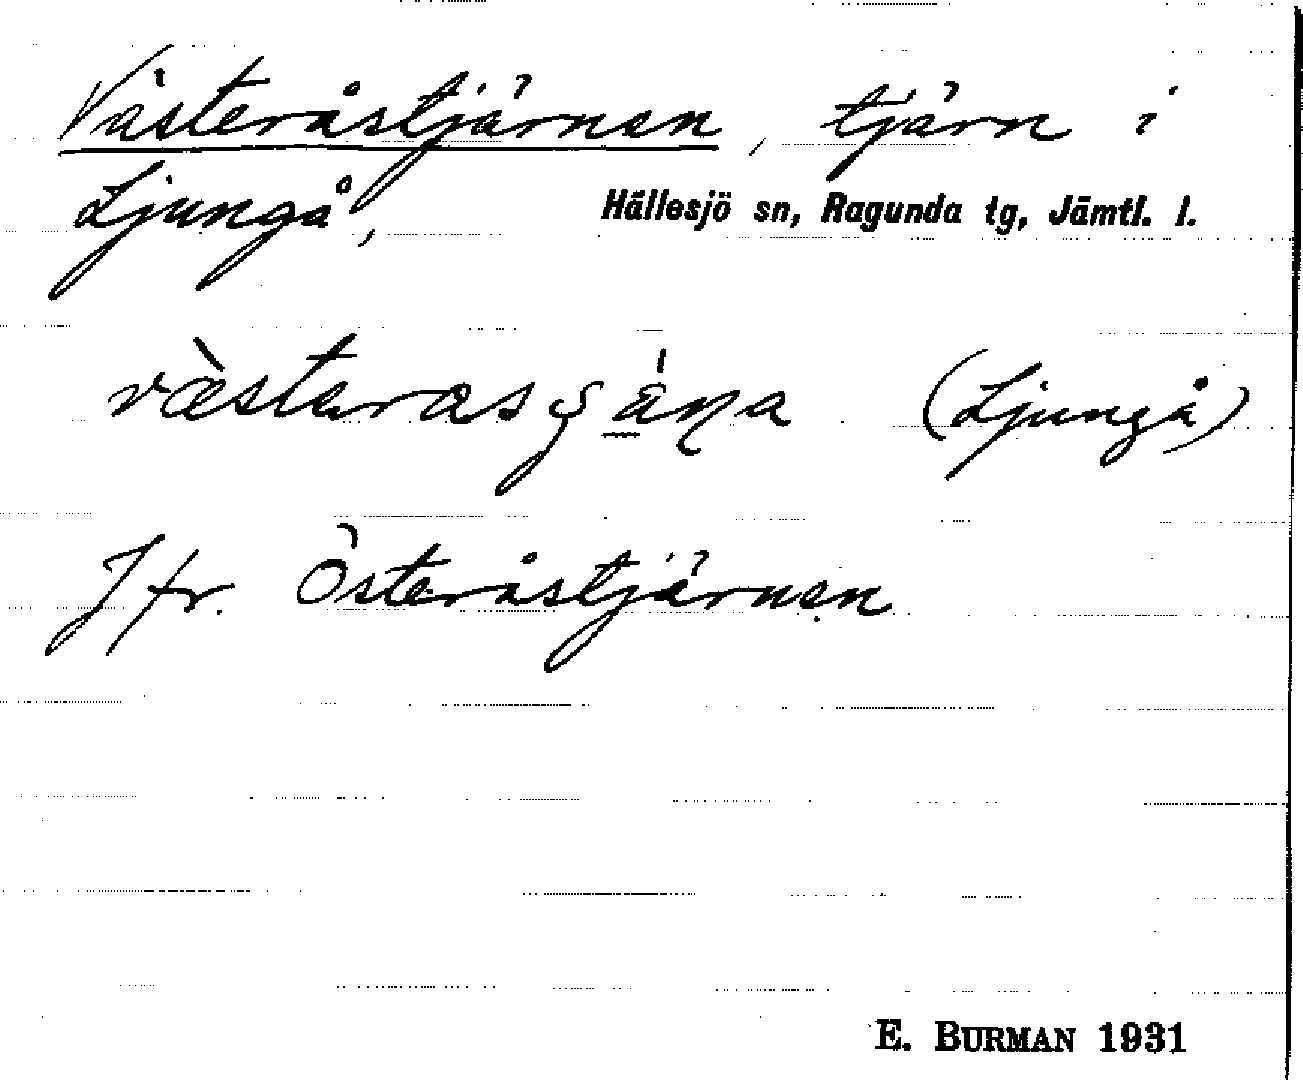 Västeråstjärnen, tjärn i
Ljungå, Hällesjö sn, Ragunda tg, Jämtl. l.
(Ljungå)
Jfr. Österåstjärnen
E. BURMAN 1931